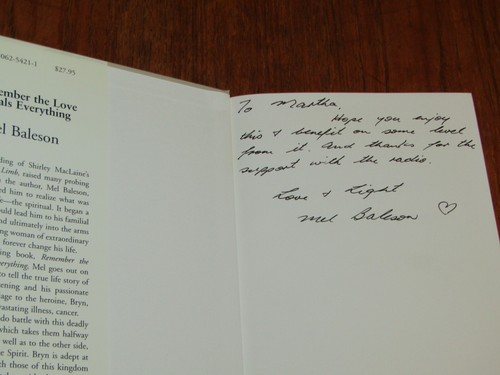 062-5421-1
$27.95
ember the Love
als Everything
el Baleson
ding of Shirley MacLaine's
Limb, raised many probing
the author. Mel Baleson,
ed him to realize what was
e—the spiritual. It began a
ould lead him to his familial
nd ultimately into the arms
ng woman of extraordinary
forever change his life.
ing book, Remember the
verything, Mel goes out on
to tell the true life story of
ening and his passionate
age to the heroine, Bryn,
vastating illness, cancer.
do battle with this deadly
which takes them halfway
well as to the other side,
e Spirit. Bryn is adept at
ch those of this kingdom
To Martha,
Hope you enjoy
this & benefit on some level
from it. And thanks for the
support with the radio.
Love & Light
Mel Baleson ♡